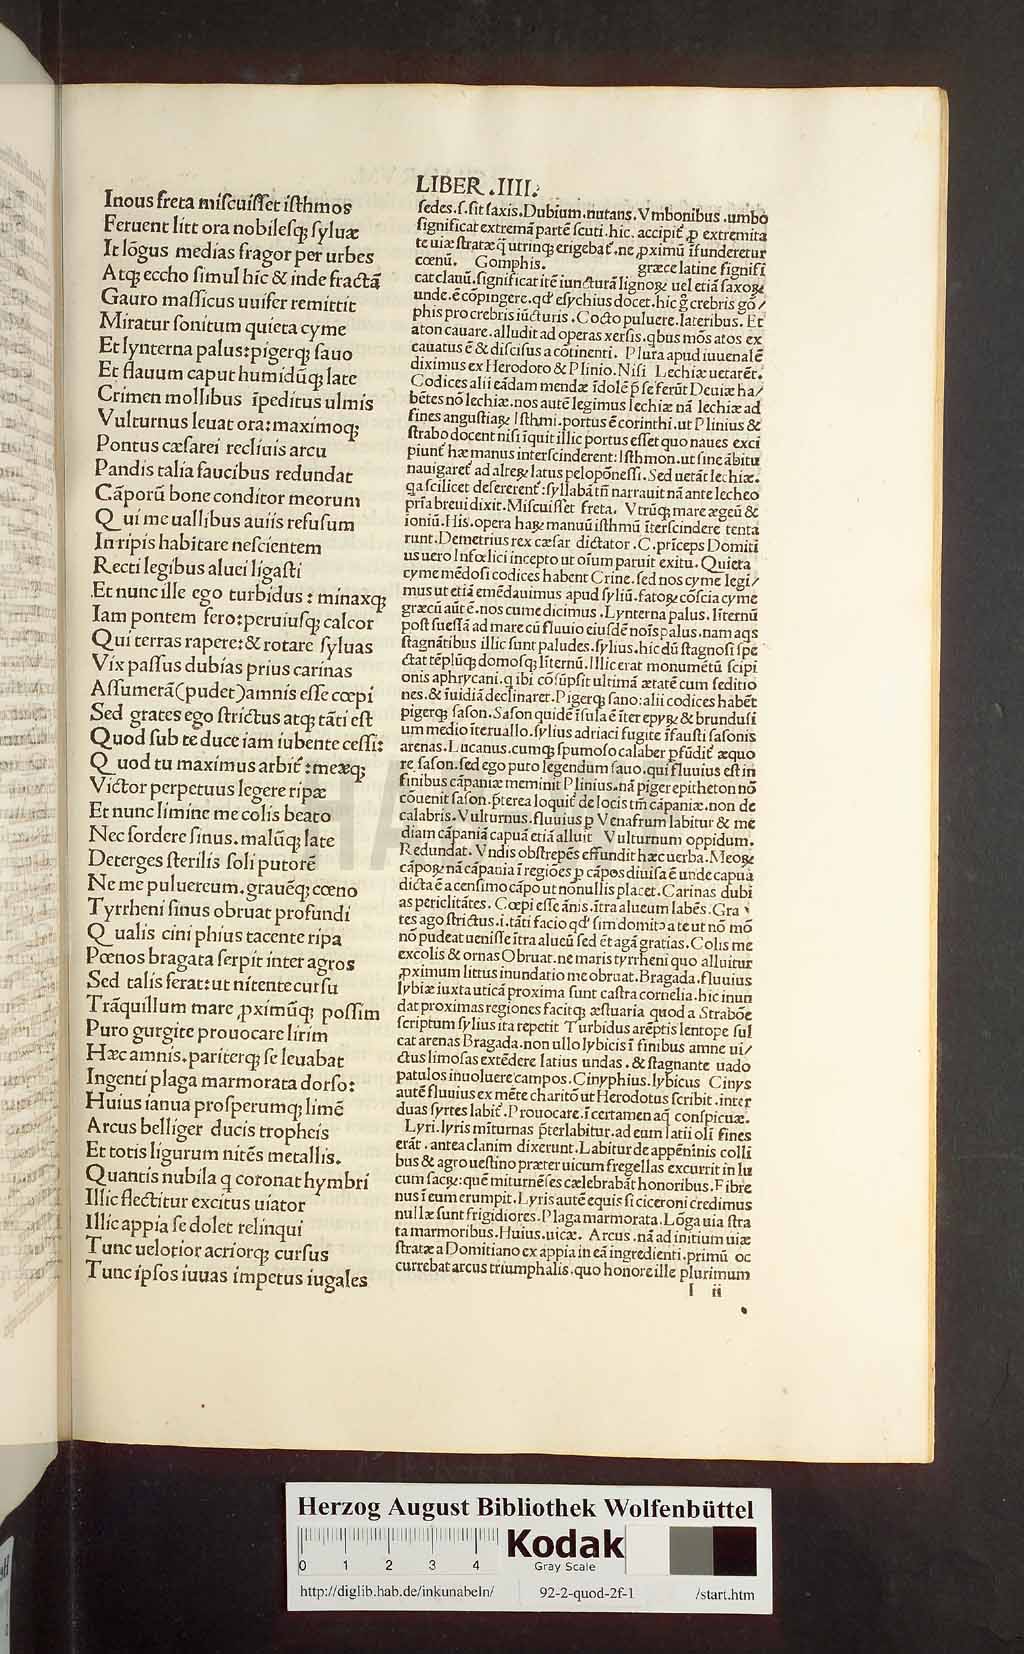 LIBER .IIII.
Inous freta miſcuiſſet iſthmos
Feruent litt ora nobileſqꝫ ſyluæ
It lōgus medias fragor per urbes
Atqꝫ eccho ſimul hīc & inde fractā
Gauro maſſicus uuifer remittit
Miratur ſonitum quieta cyme
Et lynterna palus:pigerqꝫ ſauo
Et flauum caput humidūqꝫ late
Crimen mollibus īpeditus ulmis
Vulturnus leuat ora:maximoqꝫ
Pontus cæſarei recliuis arcu
Pandis talia faucibus redundat
Cāporū bone conditor meorum
Qui me uallibus auiis refuſum
In ripis habitare neſcientem
Recti legibus aluei ligaſti
Et nunc ille ego turbidus : minaxqꝫ
Iam pontem fero:peruiuſqꝫ calcor
Qui terras rapere:& rotare ſyluas
Vix paſſus dubias prius carinas
Aſſumerā(pudet)amnis eſſe cœpi
Sed grates ego ſtrictus atqꝫ tāti eſt
Quod ſub te duce iam iubente ceſſi:
Quod tu maximus arbit̄:meæqꝫ
Victor perpetuus legere ripæ
Et nunc limine me colis beato
Nec ſordere ſinus.malūqꝫ late
Deterges ſterilis ſoli putorē
Ne me puluereum.grauēqꝫ cœno
Tyrrheni ſinus obruat profundi
Qualis cini phius tacente ripa
Pœnos bragata ſerpit inter agros
Sed talis ferat:ut nitente curſu
Trāquillum mare ꝓximūqꝫ poſſim
Puro gurgite prouocare lirim
Hæc amnis.pariterqꝫ ſe leuabat
Ingenti plaga marmorata dorſo:
Huius ianua proſperumqꝫ limē
Arcus belliger ducis tropheis
Et totis ligurum nitēs metallis.
Quantis nubila q coronat hymbri
Illic flectitur excitus uiator
Illic appia ſe dolet relinqui
Tunc uelotior acriorqꝫ curſus
Tunc ipſos iuuas impetus iugales
ſedes.ſ.ſit ſaxis.Dubium.nutans.Vmbonibus.umbo
ſignificat extremā partē ſcuti.hic.accipit̄ ꝓ extremita
te uiæ ſtratæ q̄ utrinqꝫ erigebat̄.ne ꝓximū īfunderetur
cœnū. Gomphis. græce latine ſignifi
cat clauū.ſignificat itē iuncturā lignoꝝ uel etiā ſaxoꝝ
unde.ē cōpingere.qd' eſychius docet.hic ḡ crebris gō/
phis pro crebris iūcturis.Cocto puluere.lateribus. Et
aton cauare.alludit ad operas xerſis.qbus mōs atos ex
cauatus ē & diſciſus a cōtinenti. Plura apud iuuenalē
diximus ex Herodoto & Plinio.Niſi Lechiæ uetarēt.
Codices alii eādam mendæ īdolē p̄ ſe ferūt Deuiæ ha/
bētes nō lechiæ.nos autē legimus lechiæ nā lechiæ ad
fines anguſtiaꝝ Iſthmi.portus ē corinthi.ut Plinius &
ſtrabo docent niſi īquit illic portus eſſet quo naues exci
piunt̄ hæ manus interſcinderent:Iſthmon.ut ſine ābitu
nauigaret̄ ad alteꝝ latus pelopōneſſi.Sed uetāt lechiæ.
qa ſcilicet deſererent̄:ſyllabā tn̄ narrauit nā ante lecheo
pr̄ia breui dixit.Miſcuiſſet freta. Vtrūqꝫ mare ægeū &
ioniū.His.opera haꝝ manuū iſthmū īterſcindere tenta
runt.Demetrius rex cæſar dictator .C.prīceps Domiti
us uero Infœlici incepto ut oīum paruit exitu.Quieta
cyme mēdoſi codices habent Crine.ſed nos cyme legi/
mus ut etiā emēdauimus apud ſyliū.fatoꝝ cōſcia cyme
græcū aūt ē.nos cume dicimus.Lynterna palus.literniū
poſt ſueſſā ad mare cū fluuio eiuſdē noīs palus.nam aqs
ſtagnātibus illic ſunt paludes.ſylius.hic dū ſtagnoſi ſpe
ctat tēplūqꝫ domoſqꝫ liternū.Illic erat monumētū ſcipi
onis aphrycani.q ibi cōſūpſit ultimā ætatē cum ſeditio
nes.& īuidiā declinaret.Pigerqꝫ ſano:alii codices habēt
pigerqꝫ ſaſon.Saſon quidē īſula ē īter epyꝝ & brunduſi
um medio īteruallo.ſylius adriaci fugite īfauſti ſaſonis
arenas.Lucanus.cumqꝫ ſpumoſo calaber ꝑfūdit̄ æquo
re ſaſon.ſed ego puto legendum ſauo.qui fluuius eſt in
finibus cāpaniæ meminit Plinius.nā piger epitheton nō
cōuenit ſaſon.p̄terea loquit̄ de locis tm̄ cāpaniæ.non de
calabris.Vulturnus.fluuius ꝑ Venafrum labitur & me
diam cāpaniā capuā etiā alluit Vulturnum oppidum.
Redundat.Vndis obſtrepēs effundit hæc uerba.Meoꝝ
cāpoꝝ nā cāpania ī regiōes ꝑ cāpos diuiſa ē unde capua
dicta ē a cenſimo cāpo ut nōnullis placet.Carinas dubi
as periclitātes. Cœpi eſſe ānis.ītra alueum labēs.Gra
tes ago ſtrictus.i.tāti facio qd' ſim domitꝰ a te ut nō mō
nō pudeat ueniſſe ītra alueū ſed ēt agā gratias.Colis me
excolis & ornas Obruat.ne maris tyrrheni quo alluitur
ꝓximum littus inundatio me obruat.Bragada.fluuius
lybiæ iuxta uticā proxima ſunt caſtra cornelia.hic inun
dat proximas regiones facitqꝫ æſtuaria quod a Strabōe
ſcriptum ſylius ita repetit Turbidus arēptis lentope ſul
cat arenas Bragada.non ullo lybicis ī finibus amne ui/
ctus limoſas extēdere latius undas.& ſtagnante uado
patulos inuoluere campos.Cinyphius.lybicus Cinys
autē fluuius ex mēte charitō ut Herodotus ſcribit.inter
duas ſyrtes labit̄.Prouocare.ī certamen aq̄ conſpicuæ.
Lyri.lyris mīturnas p̄terlabitur.ad eum latii olī fines
erāt.antea clanim dixerunt.Labitur de appēninis colli
bus & agro ueſtino præter uicum fregellas excurrit in lu
cum ſacꝝ:quē miturnēſes cælebrabāt honoribus.Fibre
nus ī eum erumpit.Lyris autē equis ſi ciceroni credimus
nullæ ſunt frigidiores.Plaga marmorata.Lōga uia ſtra
ta marmoribus.Huius.uicæ. Arcus.nā ad initium uiæ
ſtratæ a Domitiano ex appia in eā ingredienti.primū oc
currebat arcus triumphalis.quo honore ille plurimum
I ii
HAB WF
Herzog August Bibliothek Wolfenbüttel
0 1 2 3 4
Kodak
Gray Scale
http://diglib.hab.de/inkunabeln/ 92-2-quod-2f-1 /start.htm